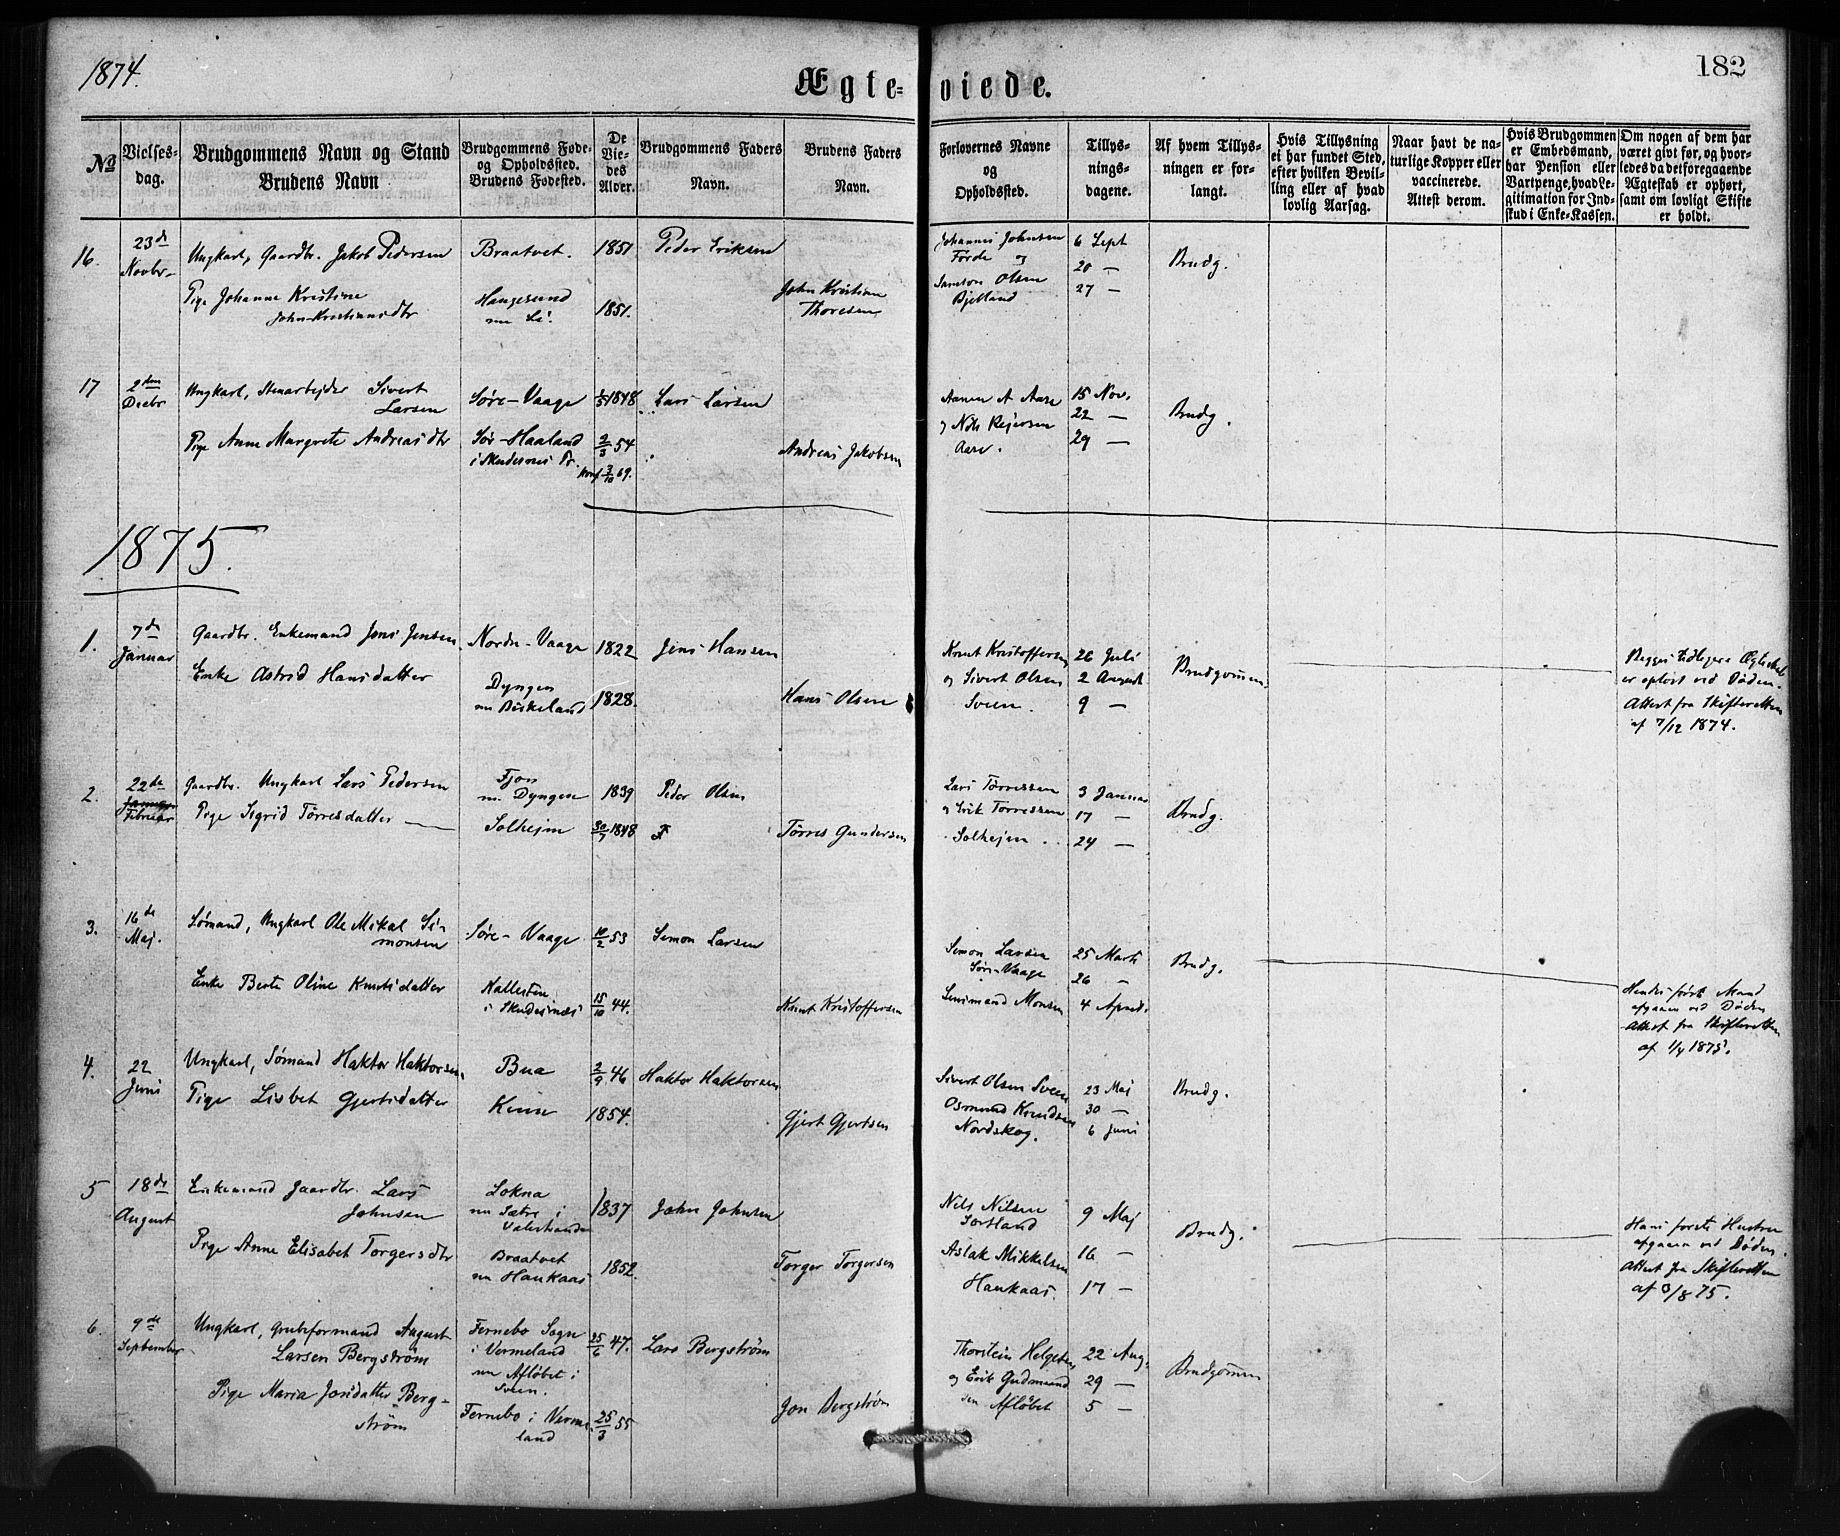 1874.
Ægte-viede.
182
№
Vielses-dag.
Brudgommens Navn og Stand
Brudens Navn
Brudgommens Føde- og Opholdssted.
Brudens Fødested.
De Vie-des Alder.
Brudgommens Faders Navn.
Brudens Faders Navn.
Forlovernes Navne og Opholdssted.
Tillys-nings-dagene.
Af hvem Tillys-ningen er for-langt.
Hvis Tillysning ei har fundet Sted, efter hvilken Bevil-ling eller af hvad lovlig Aarsag.
Naar havt de na-turlige Kopper eller vaccinerede. Attest derom.
Hvis Brudgommen er Embedsmand, har Pension eller Vartpenge, hvad Le-gitimation for Ind-skud i Enke-Kassen.
Om nogen af dem har været givt før, og hvor-ledes da det foregaaende Ægteskab er ophørt, samt om lovligt Skifte er holdt.
16. 23de Novbr. Ungkarl, Gaardbr. Jakob Pedersen Braatvet. 1851 Peder Eriksen
Pige Johanne Kristine John-Kristiansdtr Haugesund nu Li. 1851. John Kristian Thoresen
Johannes Johnsen Førde og Samson Olsen Bjelland
6 Sept
20 —
27 —
Brudg.
17 2den Decbr Ungkarl, Stenarbejder Sivert Larsen Søre-Vaage 1/5 1848 Lars Larsen
Pige Anne Margrete Andreasdtr Sør-Haaland i Skudesnes Pr. 2/3 54 Konf 3/10 69. Andreas Jakobsen
A Aase
og Nils Rejersen
Aase.
15 Nov.
22 —
29 —
Brudg.
1875.
1. 7de Januar Gaardbr. Enkemand Jens Jensen Nordre-Vaage 1822 Jens Hansen
Enke Astrid Hansdatter Dyngen nu Birkeland 1828. Hans Olsen
Knut Kristoffersen
og Sivert Olsen
Sveen.
26 Juli
2 August
9 —
Brudgommen.
Begges tidligere Ægteskab
er opløst ved Døden.
Attest fra Skifteretten
af 7/12 1874.
2. 22de Januar Februar Gaardbr. Ungkarl Lars Pedersen Fjon nu Dyngen 1839 Peder Olsen
Pige Sigrid Tørresdatter — Solhejm 30/7 1848 Tørres Gundersen
Lars Tørressen
og Erik Tørressen
Solhejm.
3 Januar
17 —
24 —
Brudg.
3. 16de Maj. Sømand, Ungkarl Ole Mikal Simonsen Søre-Vaage 10/2 53 Simon Larsen
Enke Berte Oline Knutsdatter Kallesten i Skudesnæs 15/10 44. Knut Kristoffersen
Simon Larsen
Søre-Vaage
Lensmand Monsen
25 Marts
26 —
4 April.
Brudg.
Hendes første Mand
afgaaen ved Døden
Attest fra Skifteretten
af 1/4 1875.
4. 22 Juni Ungkarl, Sømand Haktor Haktorsen. Bua 2/9 46 Haktor Haktorsen
Pige Lisbet Gjertsdatter Kinn 1854. Gjert Gjertsen
Sivert Olsen Sveen
Osmund Knudsen
Nordskog.
23 Maj
30 —
6 Juni
Brudg.
5 18de August Enkemand Gaardbr. Lars Johnsen Lokna nu Sætre i Valestranden 1837 John Johnsen
Pige Anne Elisabet Torgersdtr Braatvet nu Haukaas 1852. Torger Torgersen
Nils Nilsen
Sortland
Aslak Mikkelsen
Haukaas.
9 Maj
16 —
17 —
Brudg.
Hans første Hustru
afgaaen ved Døden.
Attest fra Skifteretten
af 3/8 75.
6. 9de September Ungkarl, Grubeformand August Larsen Bergstrøm Fernebo Sogn i Vermeland nu Afløbet i Sveen. 25/6 47. Lars Bergstrøm
Pige Maria Jonsdatter Bergstrøm Fernebo i Vermeland 25/3 55 Jon Bergstrøm
Thorstein Helgesen
og Erik Gudmundsen
Afløbet
22 Aug.
29 —
5 —
Brudgommen